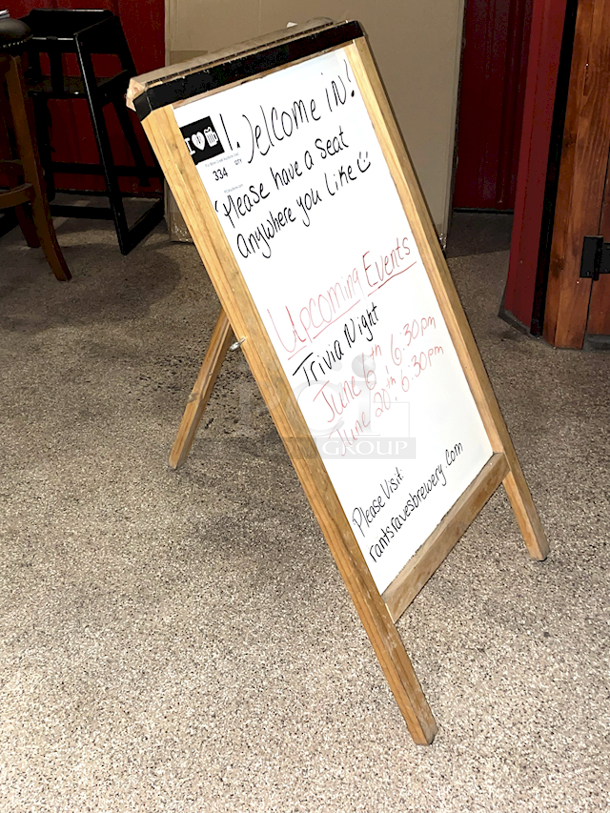 Welcome iN!
Please have a seat
anywhere you like
334
Upcoming Events
Trivia Night
June 6th 6:30pm
June 20th, 6:30pm
Please Visit:
rantsravesbrewery.com
GROUP